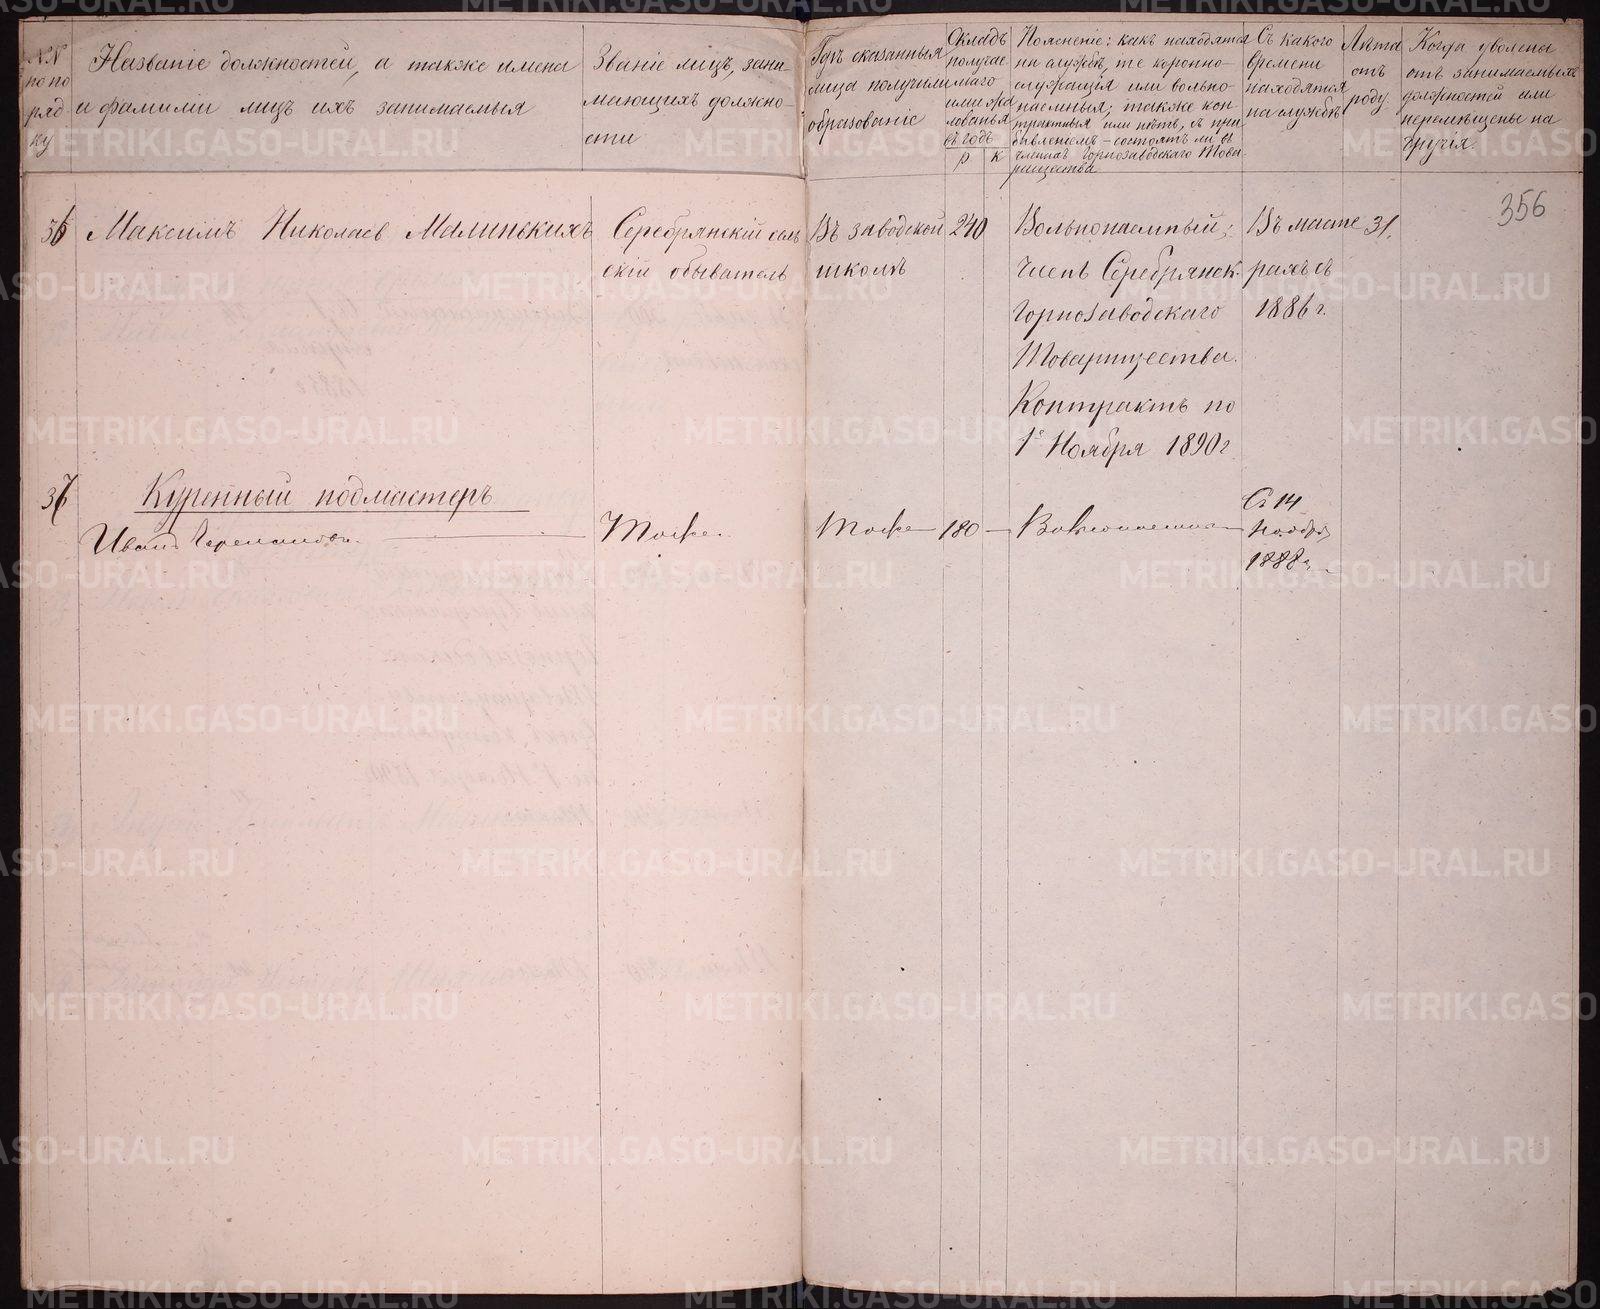 NN по по рядку
Названіе должностей, а также имена
и фамиліи лицъ ихъ занимаемыя
Званіе лицъ, зани-
мающихъ должно-
сти
Гдѣ сказанныя
лица получили
образованіе
Окладъ
получае
маго
или жа
лованья
въ годъ
р к
Поясненіе: какъ находятся
на службѣ, те коронно-
служащія или вольно-
наемныя; также кон-
трактныя или нѣтъ, съ при
бавленіемъ – состоятъ ли въ
членах Горнозаводскаго Това-
рищества
Съ какого
времени
находятся
на службѣ
Лѣта
отъ
роду.
Когда уволены
отъ занимаемыхъ
должностей или
перемѣщены на
другія.
356
36 Максимъ Николаев Малинскихъ
Серебрянскій сель
скій обыватель
Въ заводской
школѣ
240
Вольнонаемный;
членъ Серебрянск.
Горнозаводскаго
Товарищества.
Контрактъ по
1е Ноября 1890 г.
Въ масте
рахъ съ
1886 г.
31.
37 Куренный подмастеръ
Иванъ
Тоже.
Тоже 180 —
Съ 14
Ноября
1888 г.
METRIKI.GASO-URAL.RU